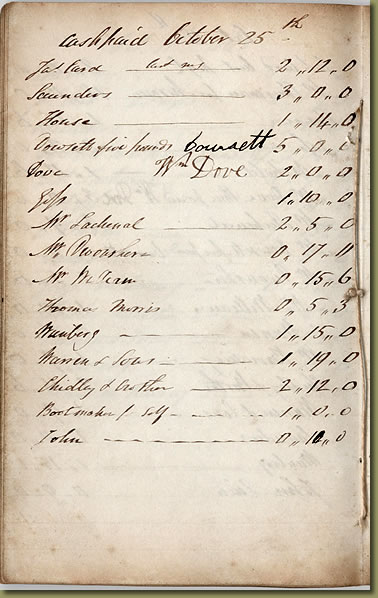 Cash paid October 25th
Jas Card 2 "12 " 0
Saunders 3 " 0 " 0
House 1 " 14 " 0
Dowsett five pounds Dowsett 5 " 0 " 0
Dove Wm Dove 2 " 0 " 0
1 " 10 " 0
Mr Lachenal 2 " 5 " 0
Mr 0 " 17 " 11
Mr 0 " 15 " 6
Thomas Morris 0 " 5 " 3
1 " 15 " 0
Warren & Sons 1 " 19 " 0
Chidley & 2 " 12 " 0
Bootmaker for Self 1 " 0 " 0
John 0 " 10 " 0